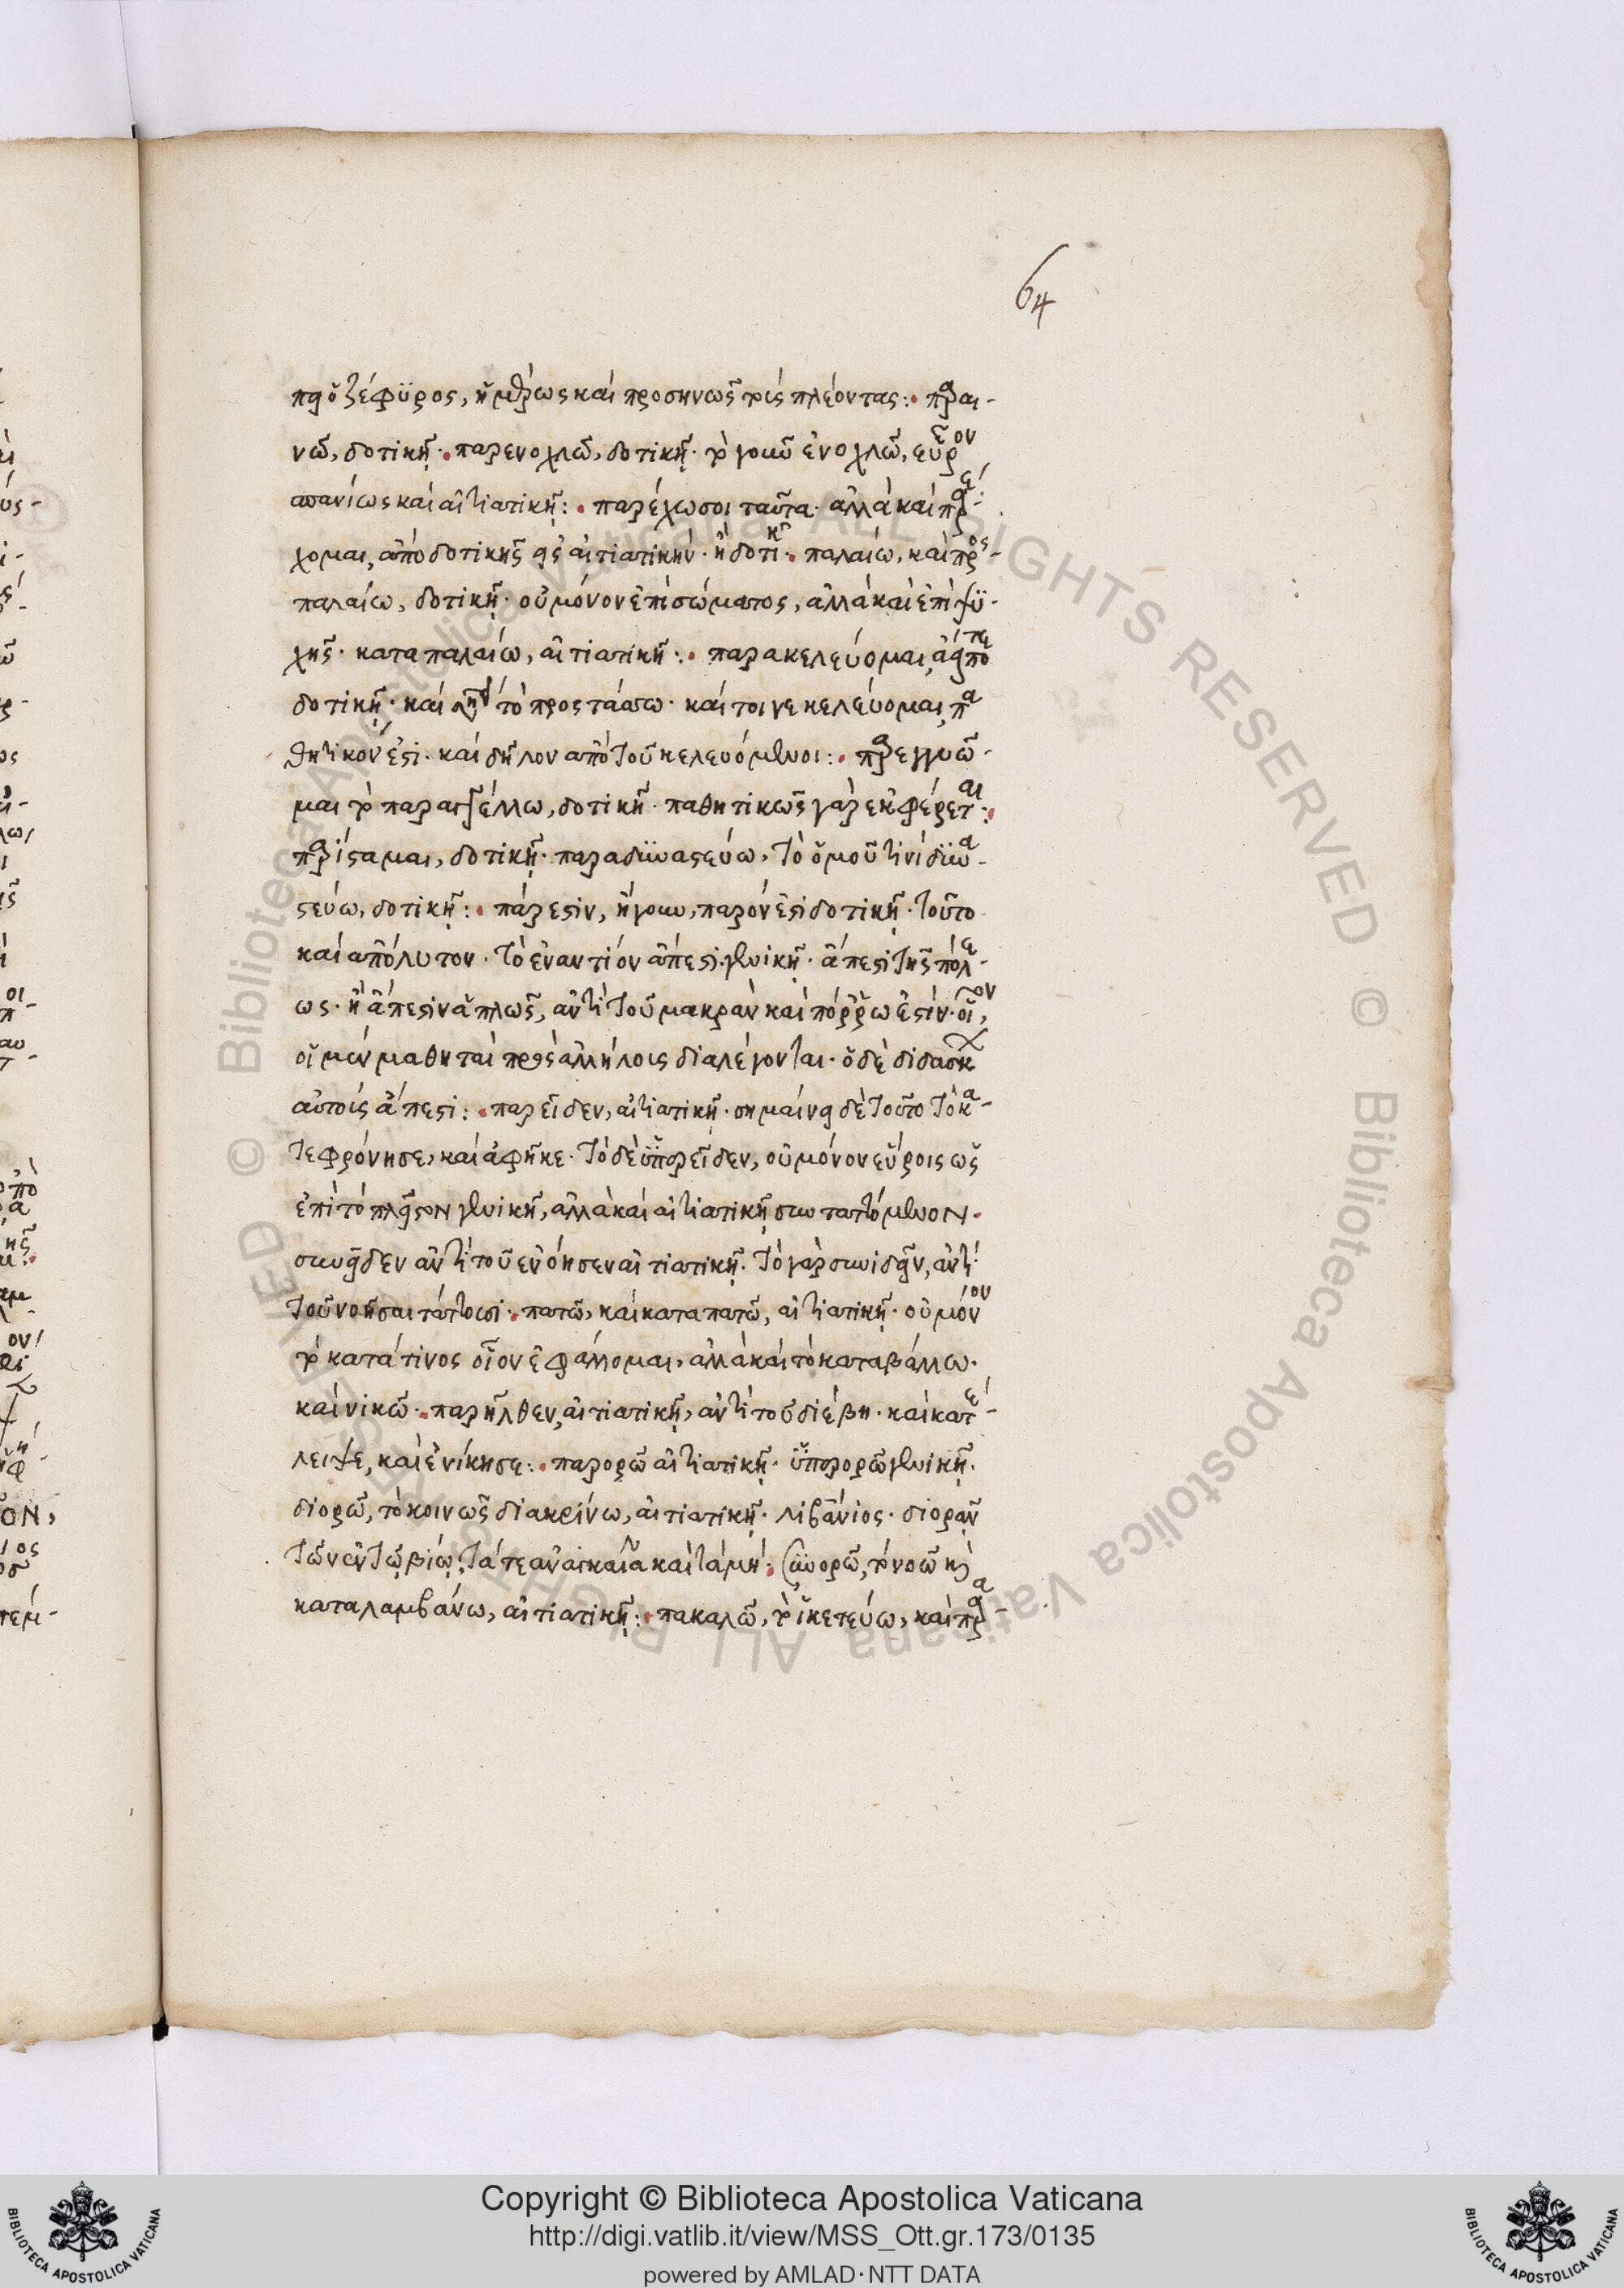 64
πνεῖ ὁ ζέφυρος, ἡμέρως καὶ προσηνῶς τοῖς πλέοντας: παραι-
νῶ, δοτικῇ. παρενοχλῶ, δοτικῇ. τὸ γοῦν ἐνοχλῶ, εὗρον
σπανίως καὶ αἰτιατικῇ: παρέχω σοι ταῦτα. ἀλλὰ καὶ παρέ-
χομαι, ἀπὸ δοτικῆς εἰς αἰτιατικήν. ἢ δοτικῇ. παλαίω, καὶ προσ-
παλαίω, δοτικῇ. οὐ μόνον ἐπὶ σώματος, ἀλλὰ καὶ ἐπὶ ψυ-
χῆς. καταπαλαίω, αἰτιατικῇ: παρακελεύομαι
δοτικῇ. καὶ τὸ προστάσσω. καί τοι γε κελεύομαι, πα
θητικόν ἐστι. καὶ δῆλον ἀπὸ τοῦ κελευόμενοι: παρεγγυῶ-
μαι τὸ παραγγέλλω, δοτικῇ. παθητικῶς γὰρ ἐκφέρεται:
παρίσταμαι, δοτικῇ. παραδυναστεύω, τὸ ὁμοῦ τινὶ δυνα-
στεύω, δοτικῇ: πάρεστιν, ἤγουν, παρόν ἐστι δοτικῇ. τοῦτο
καὶ ἀπόλυτον. τὸ ἐναντίον ἄπεστι γενικῇ. ἄπεστι τῆς πόλε-
ως. ἢ ἄπεστιν ἁπλῶς, ἀντὶ τοῦ μακρὰν καὶ πόρρω ἐστίν. οἷον,
οἱ μὲν μαθηταὶ πρὸς ἀλλήλοις διαλέγονται. ὁ δὲ διδασκ
αὐτοῖς ἄπεστι: παρεῖδεν, αἰτιατικῇ. σημαίνει δὲ τοῦτο τὸ κα-
τεφρόνησε, καὶ ἀφῆκε. τὸ δὲ ὑπερεῖδεν, οὐ μόνον εὕροις ὡς
ἐπὶ τὸ πλεῖστον γενικῇ, ἀλλὰ καὶ αἰτιατικῇ συνταττόμενον.
συνεῖδεν ἀντὶ τοῦ ἐνόησεν αἰτιατικῇ. τὸ γὰρ συνιδεῖν, ἀντὶ
τοῦ νοῆσαι τάττουσι. πατῶ, καὶ καταπατῶ, αἰτιατικῇ. οὐ μόνον
τὸ κατά τινος οἷον ἐφάλλομαι, ἀλλὰ καὶ τὸ καταβάλλω.
καὶ νικῶ. παρῆλθεν, αἰτιατικῇ, ἀντὶ τοῦ διέβη. καὶ κατέ-
λειψε, καὶ ἐνίκησε: παρορῶ αἰτιατικῇ. ὑπερορῶ γενικῇ.
διορῶ, τὸ κοινῶς διακρίνω, αἰτιατικῇ. λιβάνιος. διορᾶν
τῶν ἐν τῷ βίῳ, τά τε ἀναγκαῖα καὶ τὰ μή: συνορῶ, τὸ νοῶ καὶ
καταλαμβάνω, αἰτιατικῇ: πακαλῶ, τὸ ἱκετεύω, καὶ παρα-
Copyright © Biblioteca Apostolica Vaticana
http://digi.vatlib.it/view/MSS_Ott.gr.173/0135
powered by AMLAD·NTT DATA